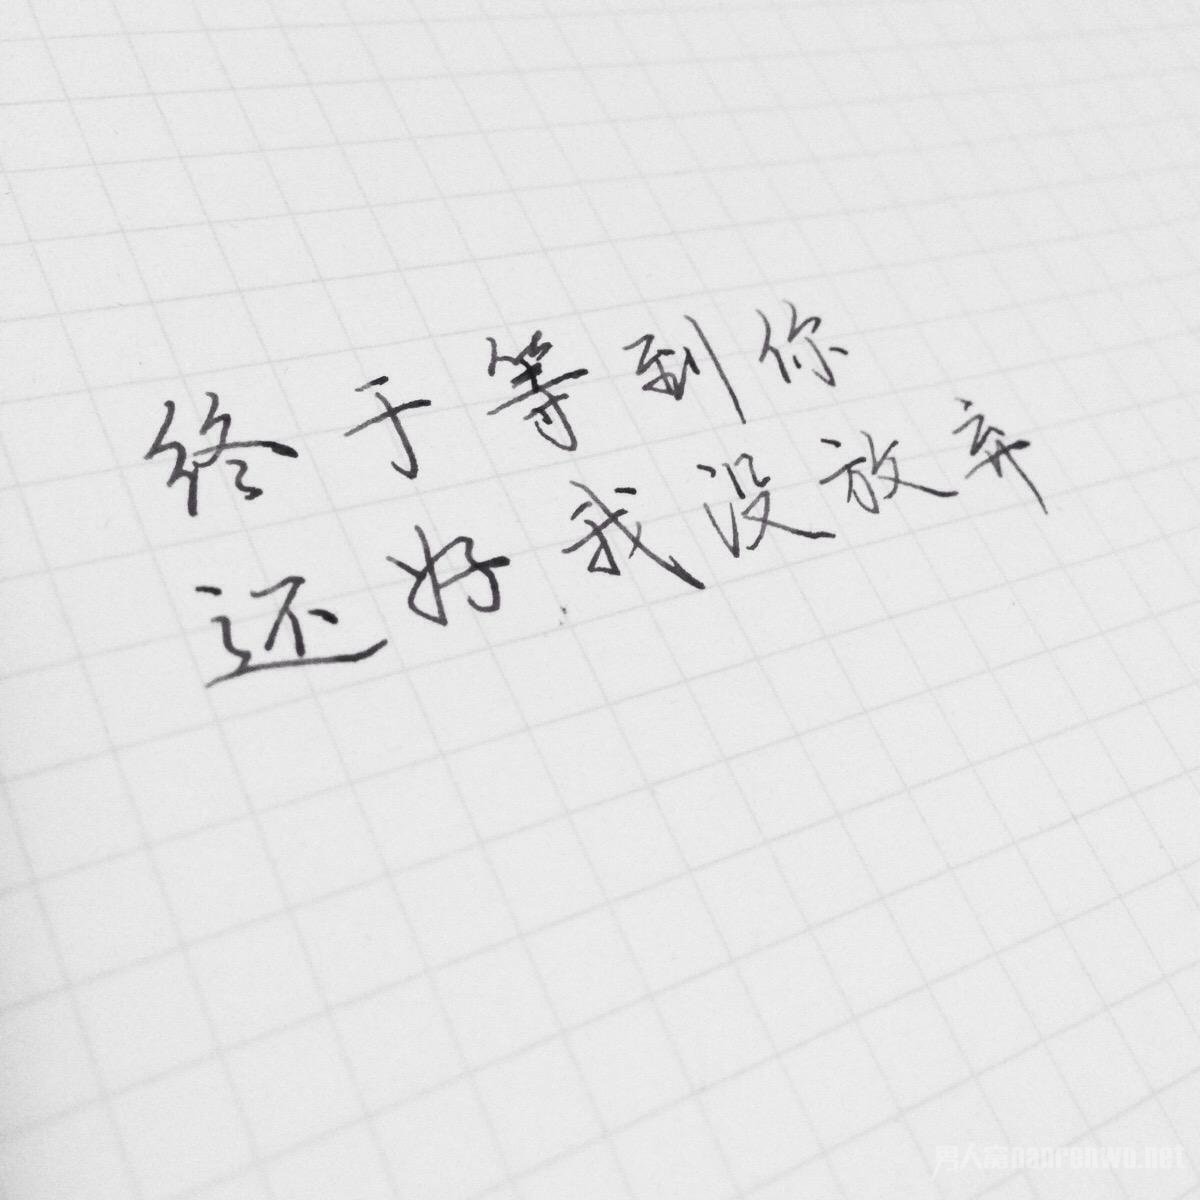 终于等到你
还好我没放弃
男人窝nanrenwo.net